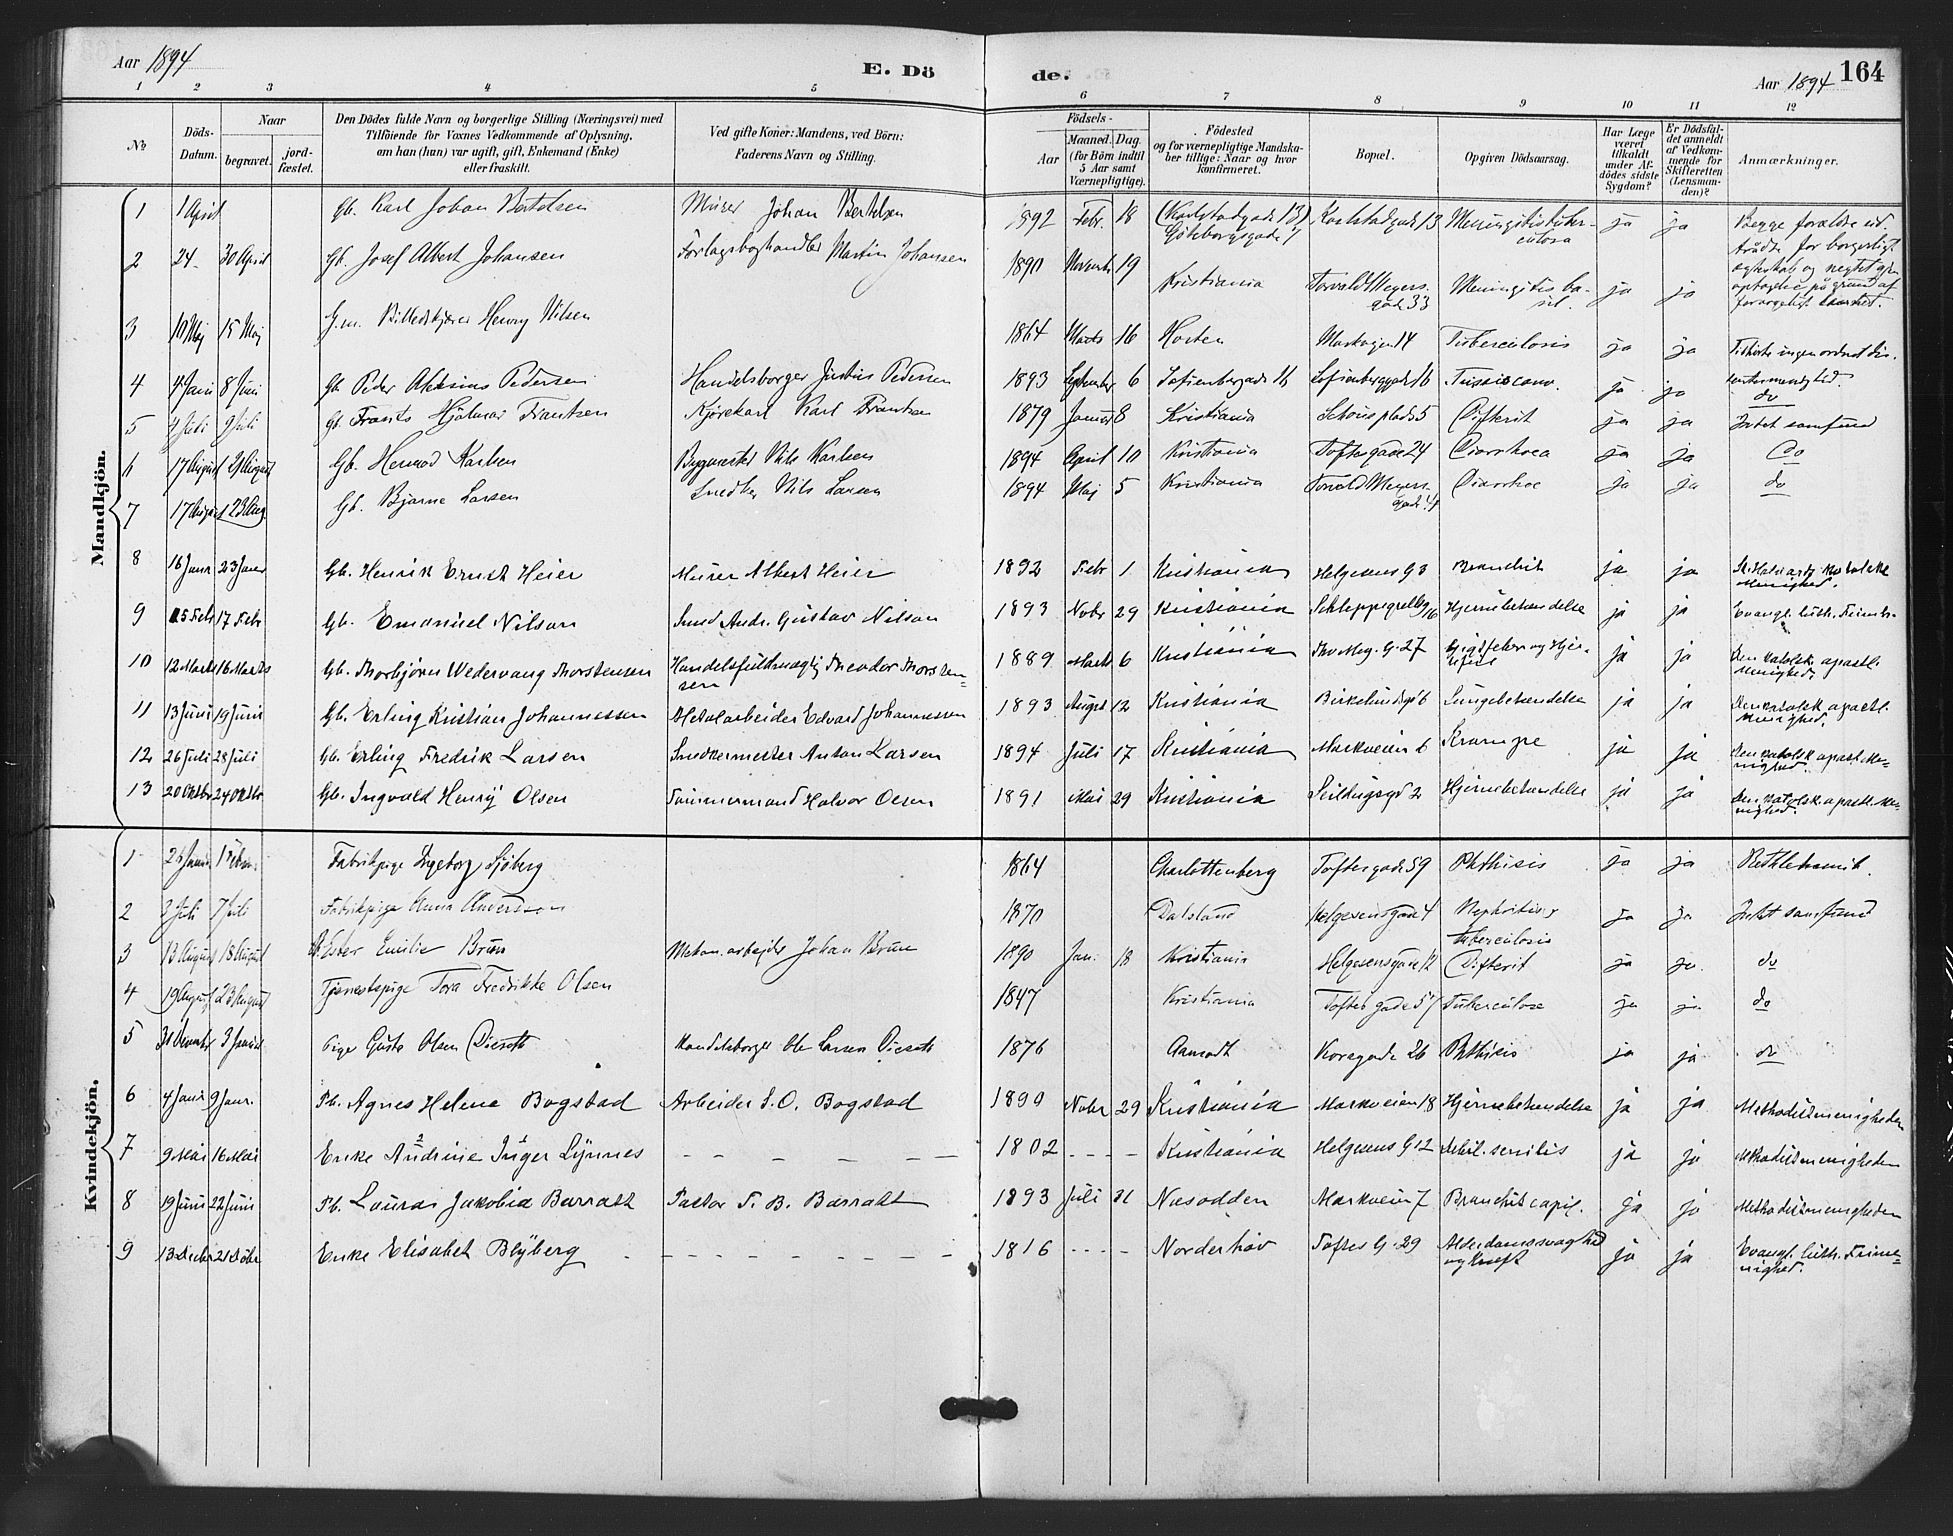 Aar 1894
E. Dö
de.
Aar 1894 164
1 2 3 4 5 6 7 8 9 10 11 12
No
Döds-Datum.
Naar
begravet.
jord-fæstet.
Den Dödes fulde Navn og borgerlige Stilling (Næringsvei) med
Tilföiende for Voxnes Vedkommende af Oplysning,
om han (hun) var ugift, gift, Enkemand (Enke)
eller fraskilt.
Ved gifte Koner: Mandens, ved Börn:
Faderens Navn og Stilling.
Födsels-
Aar
Maaned. Dag
(for Börn indtil
5 Aar samt
Værnepligtige).
Födested
og for værnepligtige Mandska-
ber tillige: Naar og hvor
konfirmeret.
Bopæl.
Opgiven Dödsaarsag.
Har Læge
været
tilkaldt
under Af-
dödes sidste
Sygdom?
Er Dödsfal-
det anmeldt
af Vedkom-
mende for
Skifteretten
(Lensman-
den)?
Anmærkninger.
Mandkjön.
1 1 April Gb. Karl Johan Bertelsen Murer Johan Bertelsen 1892 Febr. 18 (Karlstadgade 13) Göteborgsgade 7 Karlstadgade 13 Meningitis tuber-culosa ja ja Begge forældre ud-
2 24 30 April Gb. Josef Albert Johansen Forlagsboghandler Martin Johansen 1890 Novembr 19 Kristiania Torvald Meyers-gade 33 Meningitis ba-sil. ja ja trådte for borgerligt
ægteskab og negtet gjen-
optagelse på grund af
forargeligt
3 10 Maj 15 Maj G.m. Billedskjærer Henry Nilsen 1864 Marts 16 Horten Markvejen 14 Tuberculosis ja ja Tilhørte ingen ordnet dis-
sentermenighed.
4 4 Juni 8 Juni Gb. Peder Aleksius Pedersen Handelsborger Justius Pedersen 1893 September 6 Sofienbergade 16 Sofienberggade 16 Tussis conv. ja ja do
5 4 Juli 9 Juli Gb. Frants Hjalmar Frantzen Kjørekarl Karl Frantzen 1879 Januar 8 Kristiania Schous plads 5 Difterit ja ja Intet samfund
6 17 August 21 August Gb. Hermod Karlsen Bygmester Nils Karlsen 1894 April 10 Kristiania Toftesgade 24 Diarrhoea ja ja Do
7 17 August 23 Aug. Gb. Bjarne Larsen Snedker Nils Larsen 1894 Maj 5 Kristiania Torvald Meyers-gade Diarrhoe ja ja do
8 16 Janr 23 Janr Gb. Henrik Ernst Heier Murer Albert Heier 1892 Febr 1 Kristiania Helgesens G 3 Bronchit ja ja Menighed.
9 15 Febr 17 Febr Gb. Emanuel Nilson Smed Andr. Gustav Nilson 1893 Novbr 29 Kristiania Schleppegrellsg 16 Hjernebetændelse ja ja Evangl. luth. Frimh.
10 12 Marts 16 Marts Gb. Thorbjörn Wedervang Thorstensen Handelsfuldmægtig Theodor Thorsten-sen 1889 Marts 6 Kristiania Thv Mey. G. 27 Gigtfeber og Hjer-tefeil ja ja Den katolsk apostl. Menighed.
11 13 Juni 19 Juni Gb. Erling Kristian Johannessen Metalarbeider Edvard Johannessen 1893 August 12 Kristiania Birkelundsgd 6 Lungebetændelse ja ja Den katolsk apostl. Menighed.
12 26 Juli 28 Juli Gb. Erling Fredrik Larsen Snedkermester Anton Larsen 1894 Juli 17 Kristiania Markveien 6 Krampe ja ja Den katolsk apostl. Me-nighed.
13 20 Oktbr 24 Oktbr Gb. Ingvald Henrÿ Olsen Tömmermand Halvor Olsen 1891 Mai 29 Kristiania Seildugsgd 2 Hjernebetændelse ja ja Den katolsk apostl. Me-nighed.
Kvindekjön.
1 Fabrikpige Ingeborg Sjøberg 1864 Charlottenberg Toftesgade 59 Phthisis ja ja Bethlehemit.
2 2 Juli 7 Juli Fabrikpige Anna Andersson 1870 Dalsland Helgesensgade 4 Nephritis tuberculosis ja ja Intet samfund
3 13 August 18 August Ester Emilie Brun Mekan. arbejder Johan Brun 1890 Jan. 18 Kristiania Helgesensgade 12 Difterit ja ja do
4 19 August 23 August Tjenestepige Tora Fredrikke Olsen 1847 Kristiania Toftesgade 57 Tuberculose ja ja do
5 31 Decmbr 3 Januar Pige Gusta Olsen Dieseth Handelsborger Ole Larsen Dieseth 1876 Aamodt Korsgade 26 Phthisis ja ja do
6 4 Janr 9 Janr. Pb. Agnes Helene Bogstad Arbeider S.O. Bogstad 1890 Novbr 29 Kristiania Markveien 18 Hjernebetændelse ja ja Methodistmenigheden
7 9 Mai 16 Mai Enke Andrine Inger Lynnes — — — — — — 1802 — — — — Kristiania Helgesens G 12 debil. senilis ja ja Methodistmenigheden
8 19 Juni 22 Juni Pb. Laura Jakobia Barratt Pastor T. B. Barratt 1893 Juli 31 Næsodden Markveien 7 Bronchit capil. ja ja Methodistmenigheden
9 13 Decbr 21 Debr Enke Elisabet Blÿberg — — — — — — 1816 — — — — Norderhov Toftes G. 29 Alderdomssvaghed og Kræft ja ja Evangl. luth. Frime-nighed.